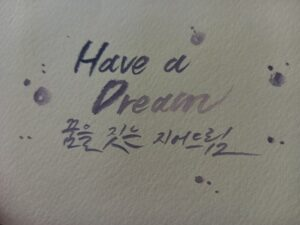 Have a
Dream
꿈을 짓는 지어드림